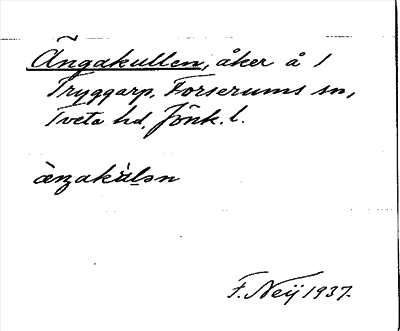 Ängakullen, åker å 1
Tryggarp, Forserums sn,
Tveta hd, Jönk. l.
ànzakàlən
F. Neij 1937.